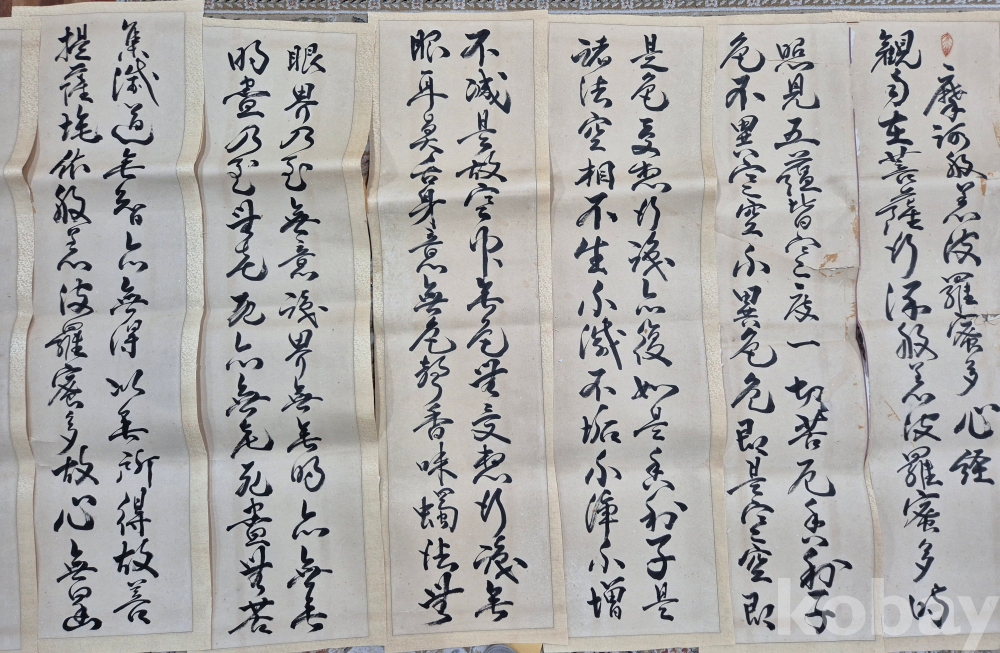 摩訶般若波羅蜜多心経
観自在菩薩行深般若波羅蜜多時
照見五蘊皆空度一切苦厄舍利子
色不異空空不異色色即是空空即
是色受想行識亦復如是舍利子是
諸法空相不生不滅不垢不淨不增
不減是故空中無色無受想行識無
眼耳鼻舌身意無色聲香味觸法無
眼界乃至無意識界無無明亦無無
明盡乃至無老死亦無老死盡無苦
集滅道無智亦無得以無所得故菩
提薩埵依般若波羅蜜多故心無罣
kobay